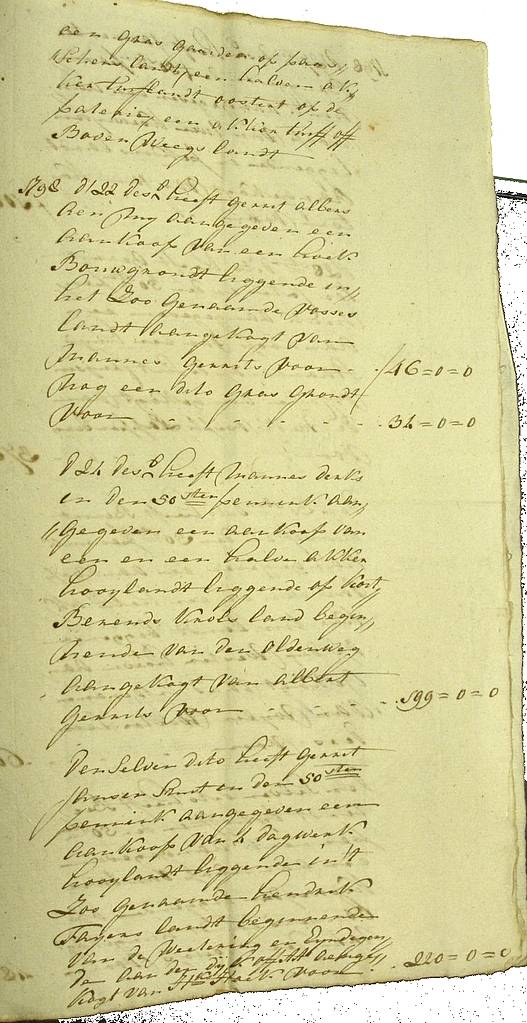 een gras gaarden op paas„
„schers landt, een halven ak„
ker turflandt oostent op de
een akker turff off
Boven Veegs landt
1798 d' 22 desb heeft Gerrit Albers
aangegeven een
aankoop van een hoek
Bouwgrondt liggende in„
het Zoo Genaamde Vosses
landt aangekogt van
Mannes Gerrits voor - 46=0=0
nog een dito Gras Grondt
voor - - - - - 34=0=0
d 24 desb heeft Mannes Derks
in den 50sten pennink aan„
„gegeven een aankoop van
een en een halve akker
hooylandt liggende op
Berends Krols land begin„
nende van den Oldenweg
aangekogt van Albert
Gerrits voor - 199=0=0
Den Selven dito heeft Gerrit
Jansen Smit in den 50sten
pennink aangegeven een
aankoop van 4 dagwerk
hooylandt liggende in't
Zoo genaamde Hendrik
landt beginnende
van de en Eyndegen„
de aan de
kogt van voor - 220=0=0